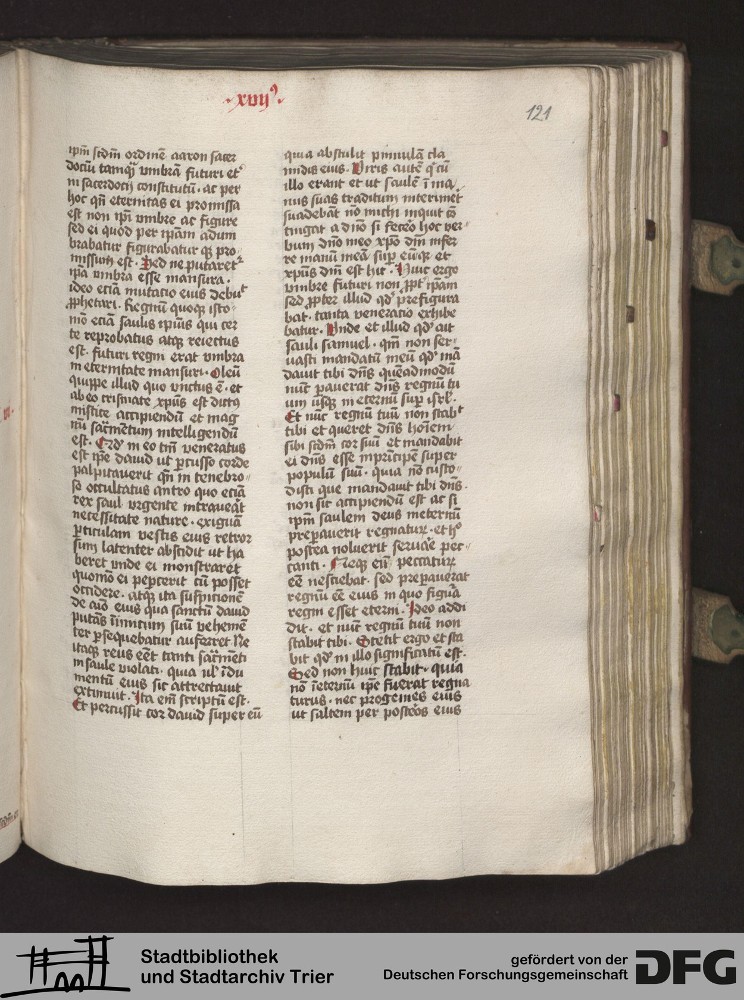 ·xvij⁹·
121
ipm̄ scdm̄ ordinē aaron sacer
dociū tamq̄ vmbra futuri et̾
ni sacerdocij constitutū · ac per
hoc qn̄ eternitas ei promissa
est non ipi vmbre ac figure
sed ei quod per ipam adum
brabatur figurabatur q̨ pro
missum est · Sed ne putaret᷑
ipa vmbra esse mansura ·
ideo eciā mutacio eius debuᵗ
ꝓphetari · Regnū quoq̨ isto
mō eciā saulis ipius qui cer
te reprobatus atq̨ reiectus
est · futuri regni erat vmbra
in eternitate mansuri · Oleū
quippe illud quo vnctus ē · et
ab eo crismate xp̄us est dictꝰ
mistice accipiendū et mag
nū sacͬmentum intelligendū
est · Qd̓ in eo tm̄ veneratus
est ipe dauid ut ꝑcusso corde
palpitauerit qn̄ in tenebro
so occultatus antro quo eciā
rex saul vrgente intrauerat
necessitate nature · exiguā
ꝑticulam vestis eius retror
sum latenter abscidit ut ha
beret vnde ei monstraret
quomō ei pepercit cū posset
occidere · atq̨ ita suspicionē
de aīo eius qua sanctū dauid
putās īimicum suū vehemē
ter ꝑsequebatur auferret Ne
itaq̨ reus eēt tanti sacͬmēti
in saule violati · quia ul̓ īdu
mentū eius sic attrectauit
extimuit · Ita em̄ scriptū est ·
Et percussit cor dauid super eū
quia abstulit pinnulā cla
midis eius · Viris autē q̓ cū
illo erant et ut saulē ī ma
nus suas traditum interimēt
suadebāt nō michi inquit cō
tingat a dn̄o si fecēo hoc ver
bum dn̄o meo xp̄o dn̄i infer
re manū meā sup̄ eūq̨ et
xp̄us dn̄i est hic · Huic ergo
vmbre futuri non ꝓpt̓ ipam
sed ꝓpter illud qd̓ prefigura
bat · tanta veneratio exhibe
batur · Vnde et illud qd̓ ait
sauli samuel · qm̄ non ser
uasti mandatū meū qd̓ mā
dauit tibi dn̄s quēadmodū
nūc pauerat dn̄s regnū tu
um usq̨ in eternū sup̄ isrl̓ ·
Et nūc regnū tuū non stabᵗ
tibi et queret dn̄s hoīem
sibi scdm̄ cor suū et mandabit
ei dn̄s esse inprīcipē super
populū suū · quia nō custo
disti que mandauit tibi dn̄s ·
non sic accipiendū est ac si
ipm̄ saulem deus ineternū
prepauerit regnaturū · et h̓
postea noluerit seruare pec
canti · Neq̨ em̄ peccaturū
eē nesciebat · sed prepauerat
regnū eē eius in quo figurā
regni esset eterni · Ideo addi
dit · et nūc regnū tuū non
stabit tibi · Stetit ergo et sta
bit qd̓ in illo significatū est ·
Sed non huic stabit · quia
nō īeternū ipe fuerat regna
turus · nec progenies eius
ut saltem per posteros eius
Stadtbibliothek
und Stadtarchiv Trier
gefördert von der
Deutschen Forschungsgemeinschaft
DFG